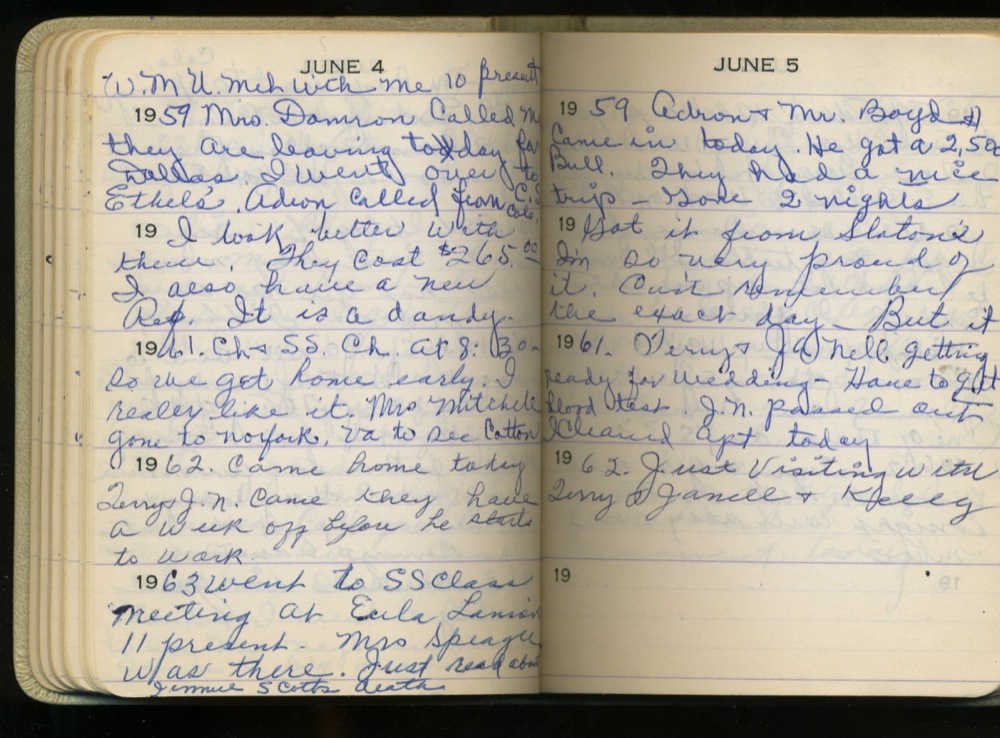 JUNE 4
W.M.U. met with me 10 present
1959 Mrs. Damron Called m
they are leaving today for
Dallas. I went over to
Ethel's. Adron called from C.S.
Colo.
19 I look better with
them. They cost $265.00
I also have a new
Ref. It is a dandy.
1961. Ch & SS. Ch. at 8:30-
so we get home early. I
realey like it. Mrs Mitchell
gone to Norfork, Va to see Cotton
1962. Came home today
Terry & J.N. Came they have
a week off before he starts
to work
1963 went to SS Class
meeting at Eula
11 present. Mrs Speague
was there. Just read about
Jennie Scotts death
JUNE 5
1959 Adron & Mr. Boyd
Came in today. He got a 2,500
Bull. They had a nice
trip - Gone 2 nights
19 Got it from Slatons
Im so very proud of
it. Can't remember
the exact day - But it
1961. Terry & Ja Nell getting
ready for wedding - Have to get
blood test. J.N. passed out
I Cleaned apt today
1962. Just Visiting with
Terry & Janell & Kelly
19